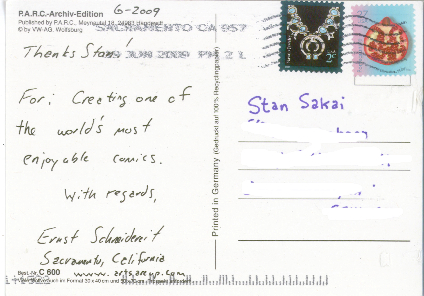 P.A.R.C.-Archiv-Edition
6-2009
Published by P.A.R.C.,
© by VW-AG, Wolfsburg
SACRAMENTO CA 957
JUN 2009 PM 2 L
2¢
27
Thanks Stan!
For: Creating one of
the world's most
enjoyable comics.
With regards,
Ernst Schmidereit
Sacramento, California
www.artsareup.com
Best.-Nr. C 600
Printed in Germany (Gedruckt auf 100% Recyclingpapier)
Stan Sakai